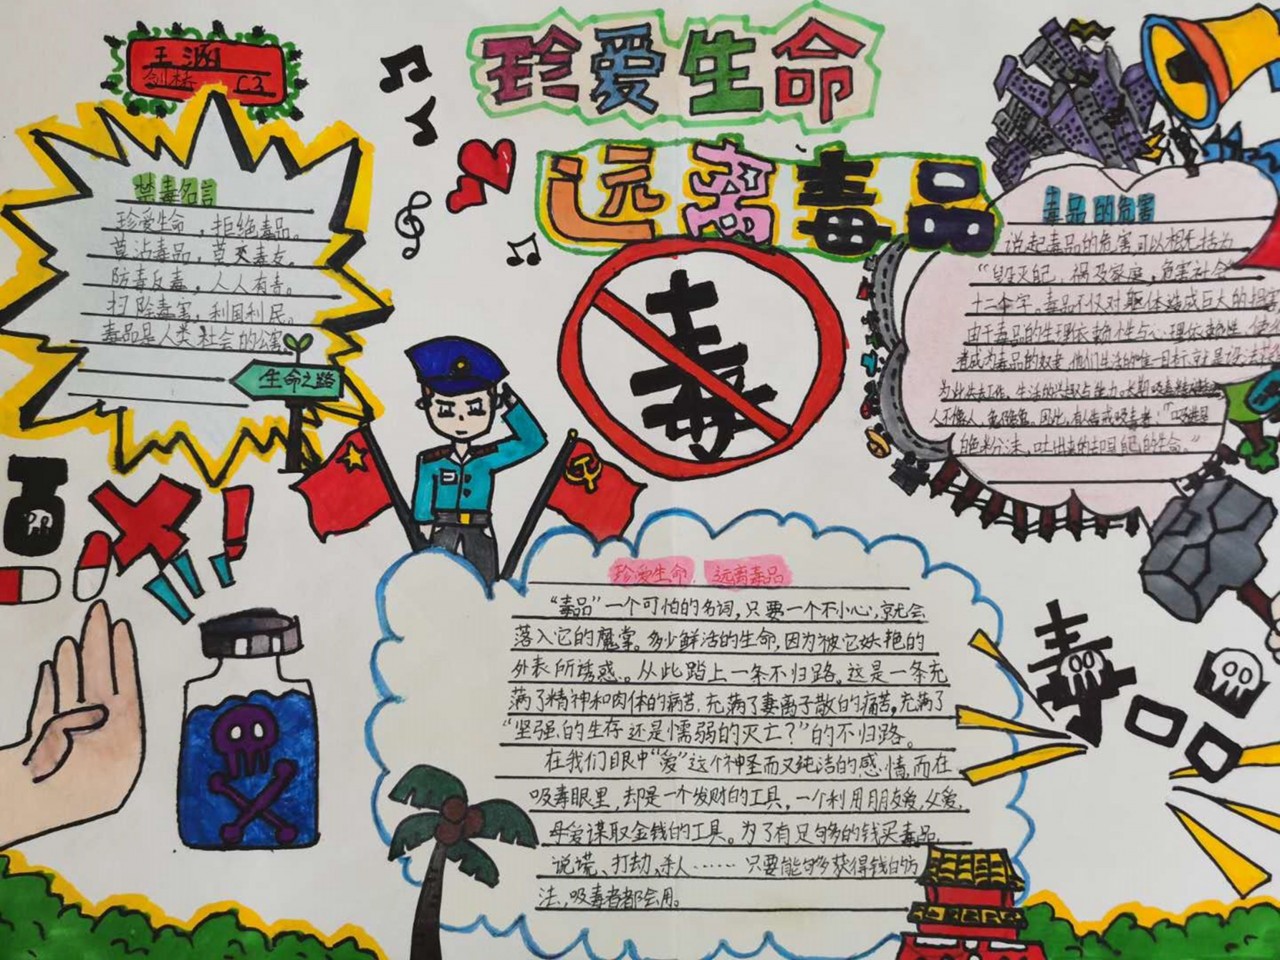 珍爱生命
远离毒品
王涵
C3
禁毒名言
珍爱生命，拒绝毒品。
莫沾毒品，莫交毒友。
防毒反毒，人人有责。
扫除毒害，利国利民。
毒品是人类社会的公害
生命之路
毒
毒品的危害
说起毒品的危害可以概括为
"毁灭自己，祸及家庭，危害社会"
十二个字。毒品不仅对躯体造成巨大的损害
由于毒品的生理依赖性与心理依赖性，使
者成为毒品的奴隶，他们生活的唯一目标就是设法
为此失去工作、生活的兴趣与能力。长期吸毒精神
人不像人，鬼不像鬼。因此，有人告诫吸毒者："吸进是
白色粉末，吐出来的却是自己的生命。"
珍爱生命，远离毒品
"毒品"一个可怕的名词，只要一个不小心，就会
落入它的魔掌。多少鲜活的生命，因为被它妖艳的
外表所诱惑。从此踏上一条不归路。这是一条充
满了精神和肉体的病苦，充满了妻离子散的痛苦，充满了
"坚强的生存还是懦弱的灭亡？"的不归路。
在我们眼中"爱"这个神圣而又纯洁的感情，而在
吸毒眼里，却是一个发财的工具，一个利用朋友爱，父爱，
母爱谋取金钱的工具。为了有足够多的钱买毒品，
说谎、打劫、杀人……只要能够多获得钱的方
法，吸毒者都会用。
毒品